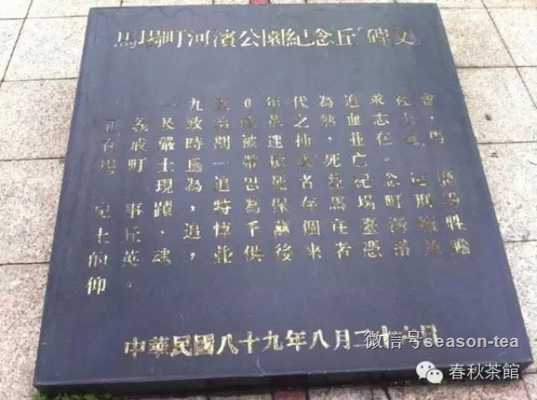 馬場町河濱公園紀念丘「碑文」
一九五0年代為追求社會
正義及政治改革之熱血志士,
在戒嚴時期被逮捕,並在馬
場町土丘一帶被槍決死亡。
現為追思死者並紀念這歷
史事蹟,特為保存馬場町刑場
土丘,追悼千萬個在臺灣犧牲
的英魂,並供後來者憑弔及瞻
仰。
中華民國八十九年八月二十六日
微信号:season-tea
春秋茶館